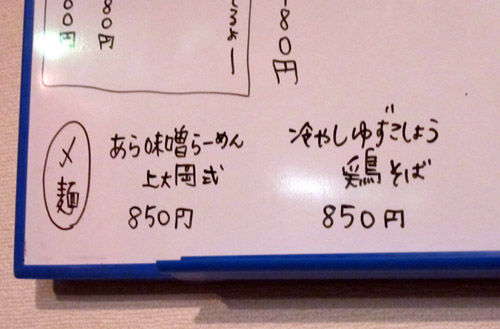 くるみー
80円
00円
-80円
〆麺
あら味噌らーめん
上大岡式
850円
冷やしゆずこしょう
鶏そば
850円